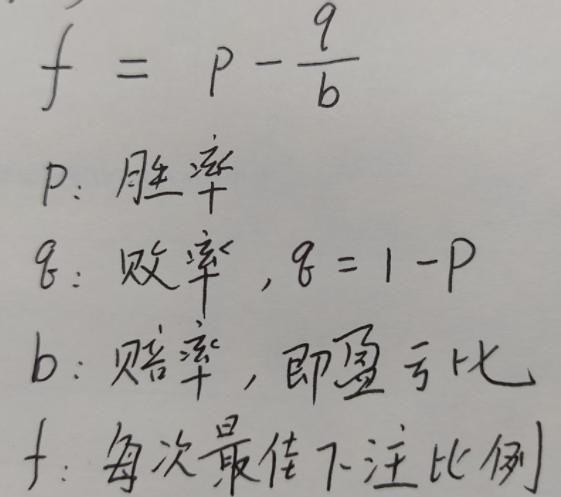 f = p - q/b
p: 胜率
q: 败率, q = 1 - p
b: 赔率, 即盈亏比
f: 每次最佳下注比例